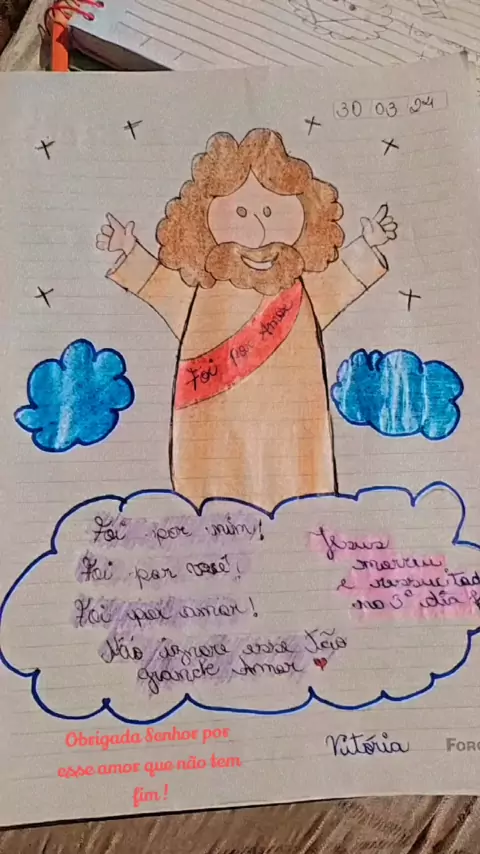 30 03 24
Foi por Amor
Foi por mim!
Foi por você!
Foi por amor!
Não ignore esse tão
grande Amor
Jesus
morreu,
e
no 3º dia
Obrigada Senhor por
esse amor que não tem
fim!
Vitória